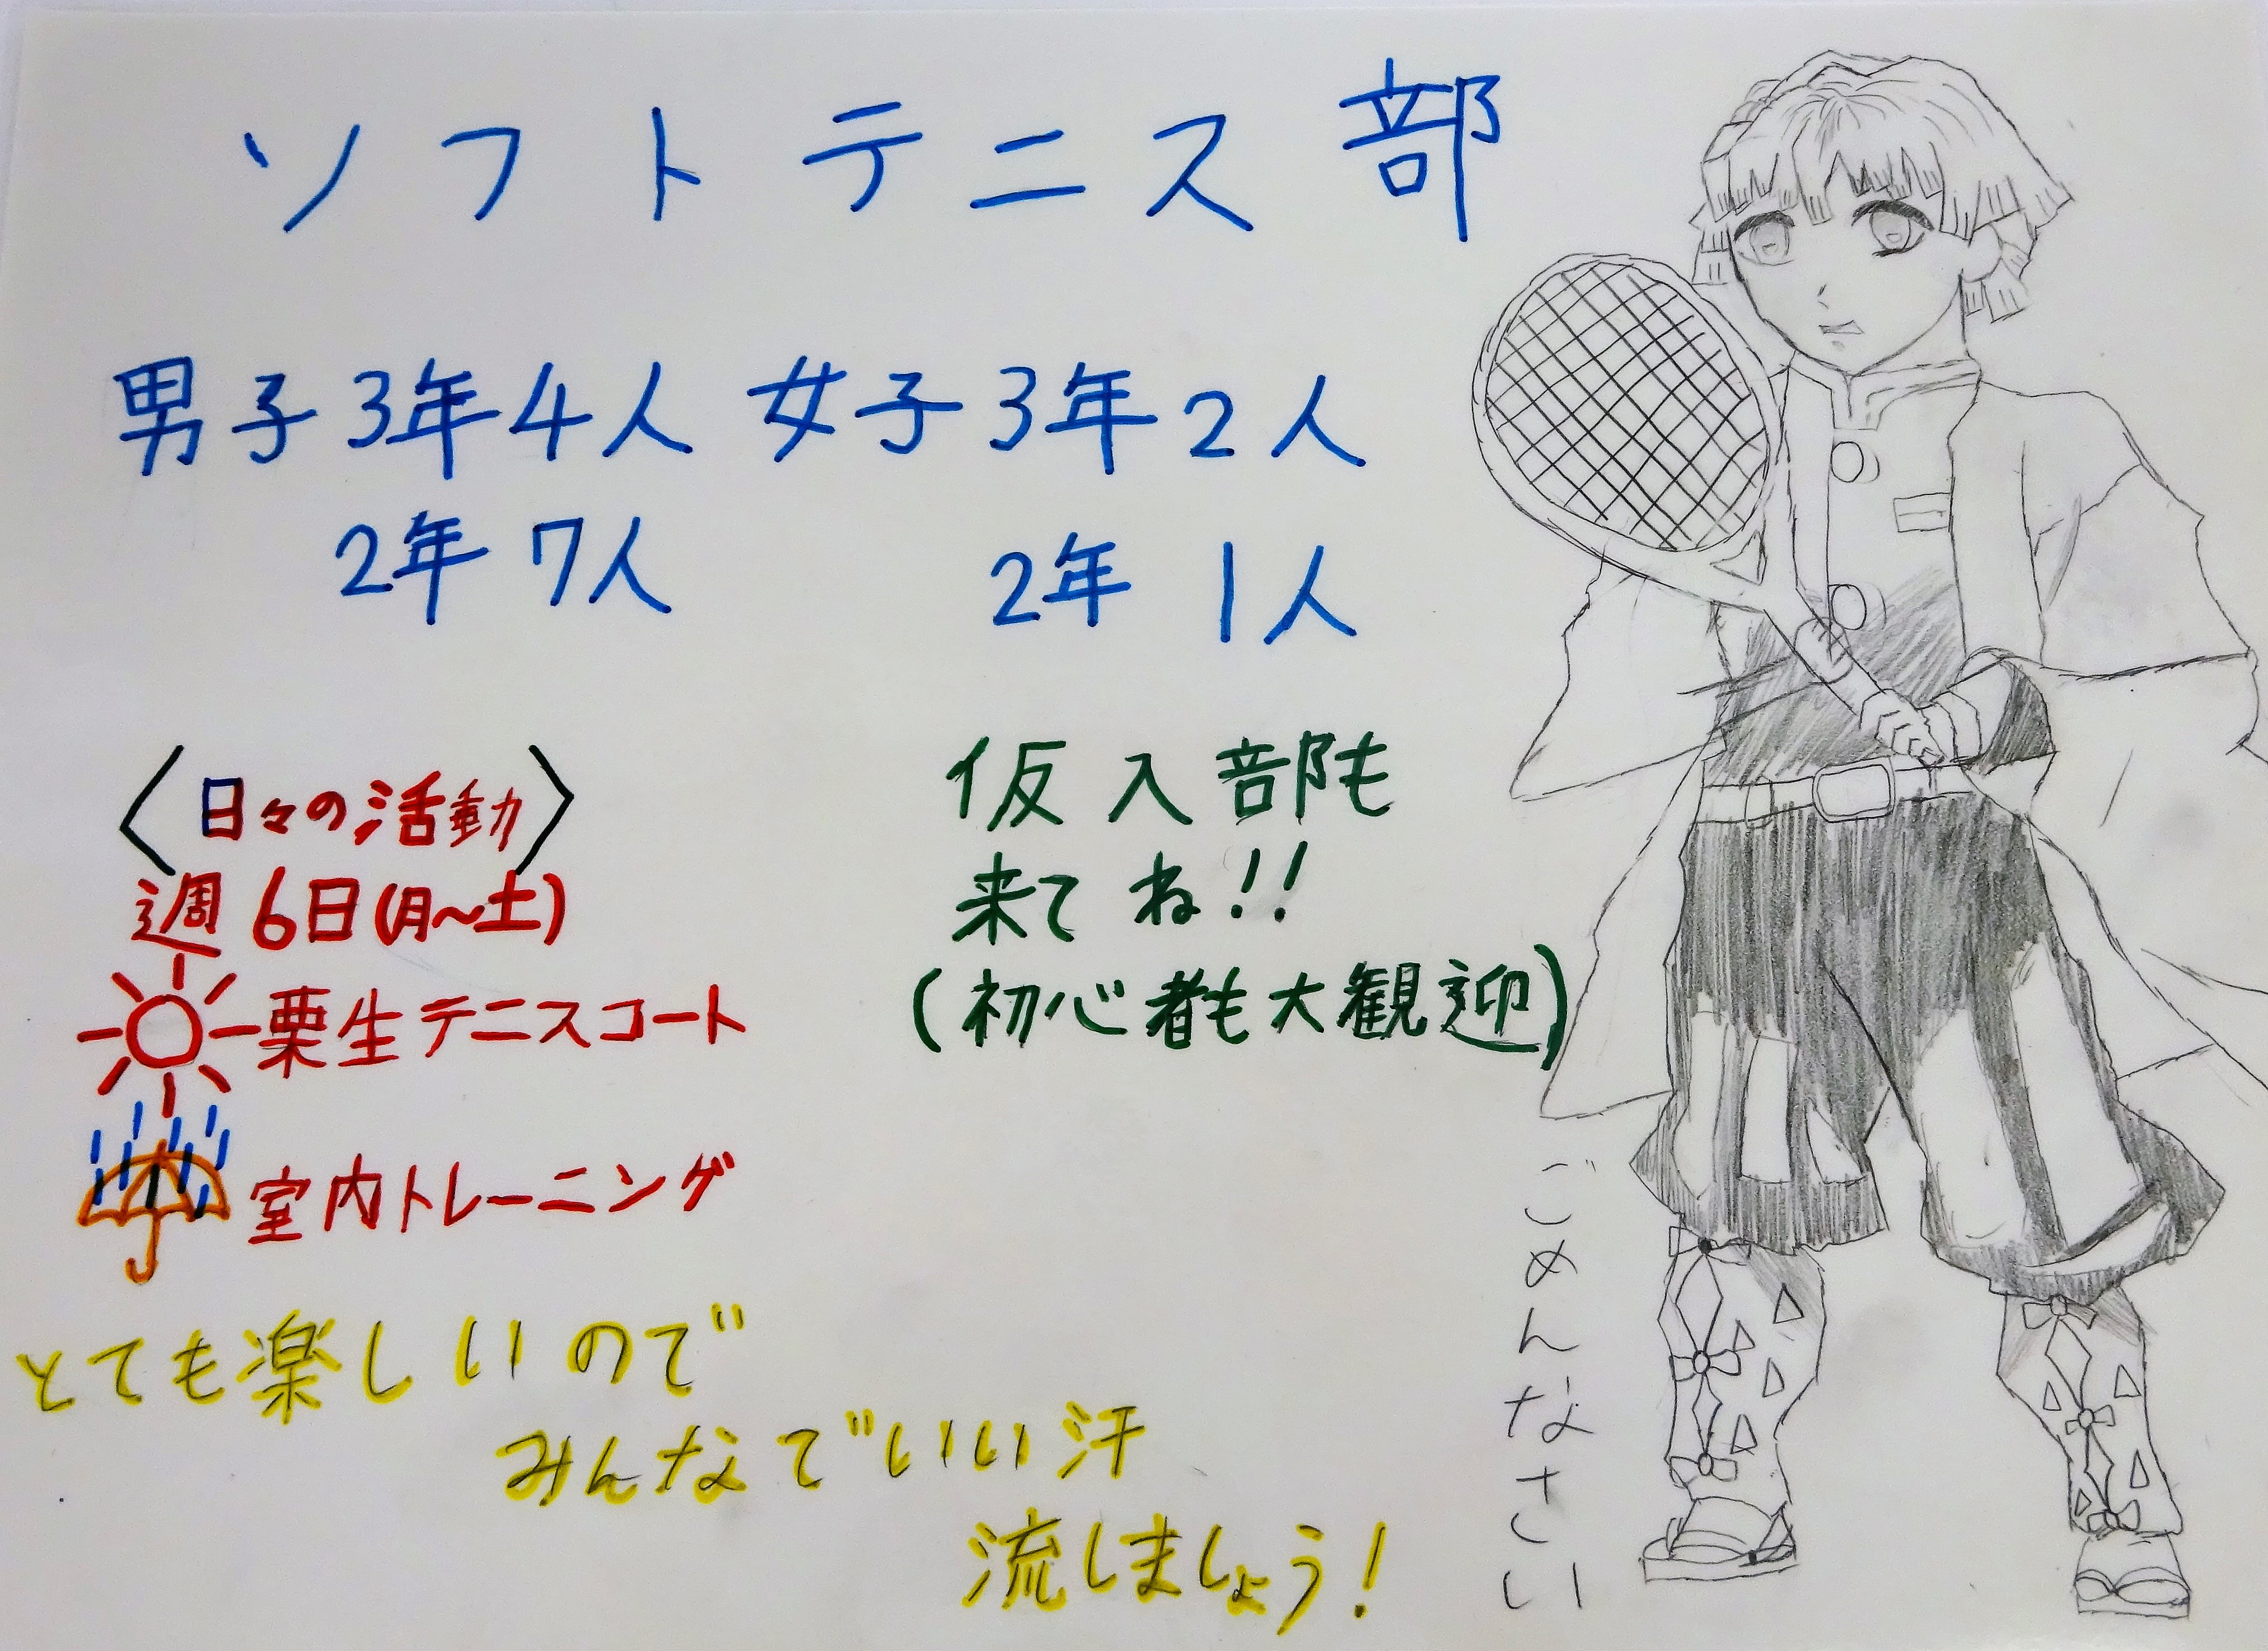 ソフトテニス部
男子3年4人 女子3年2人
2年 7人 2年 1人
〈日々の活動〉
週6日(月〜土)
栗生テニスコート
室内トレーニング
仮入部も
来てね!!
(初心者も大観迎)
とても楽しいので
みんなでいい汗
流しましょう!
ごめんなさい